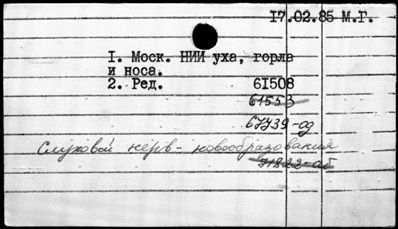 17.02.85 М.Г.
I. Моск. НИИ уха, горла
и носа.
2. Ред. 6I508
61553
67739-од
Слуховой нерв - новообразования
91822-об